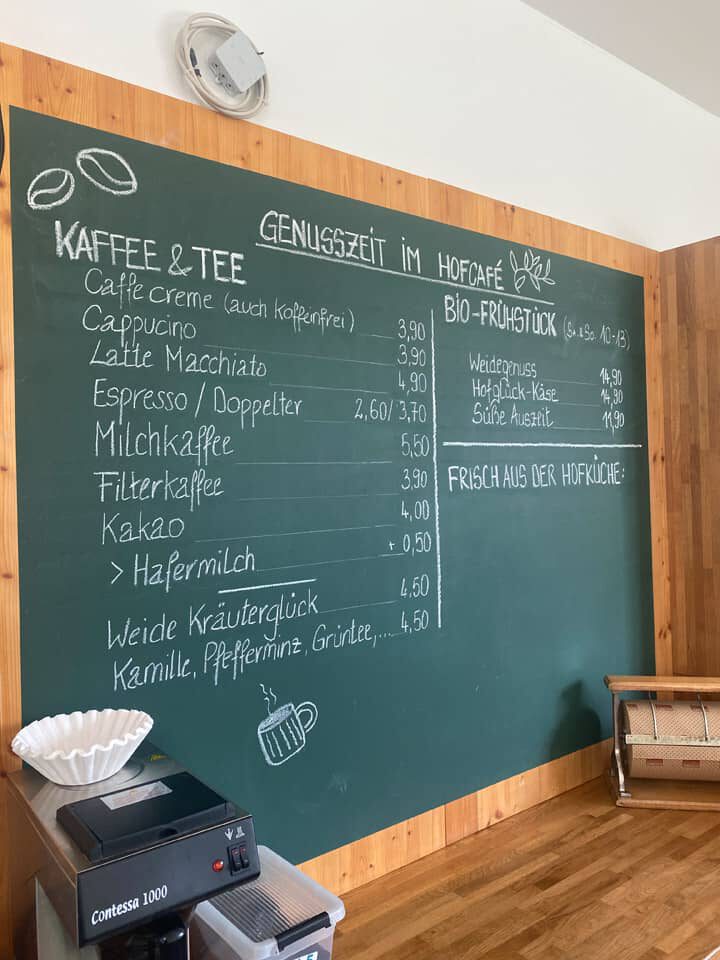 GENUSSZEIT IM HOFCAFÉ
KAFFEE & TEE
Caffe creme (auch koffeinfrei) 3,90
Cappucino 3,90
Latte Macchiato 4,90
Espresso / Doppelter 2,60/3,70
Milchkaffee 5,50
Filterkaffee 3,90
Kakao 4,00
> Hafermilch + 0,50
Weide Kräuterglück 4,50
Kamille, Pfefferminz, Grüntee,... 4,50
BIO-FRÜHSTÜCK (Sa & So. 10-13)
Weidegenuss 14,90
Hofglück-Käse 14,90
Süße Auszeit 11,90
FRISCH AUS DER HOFKÜCHE:
Contessa 1000